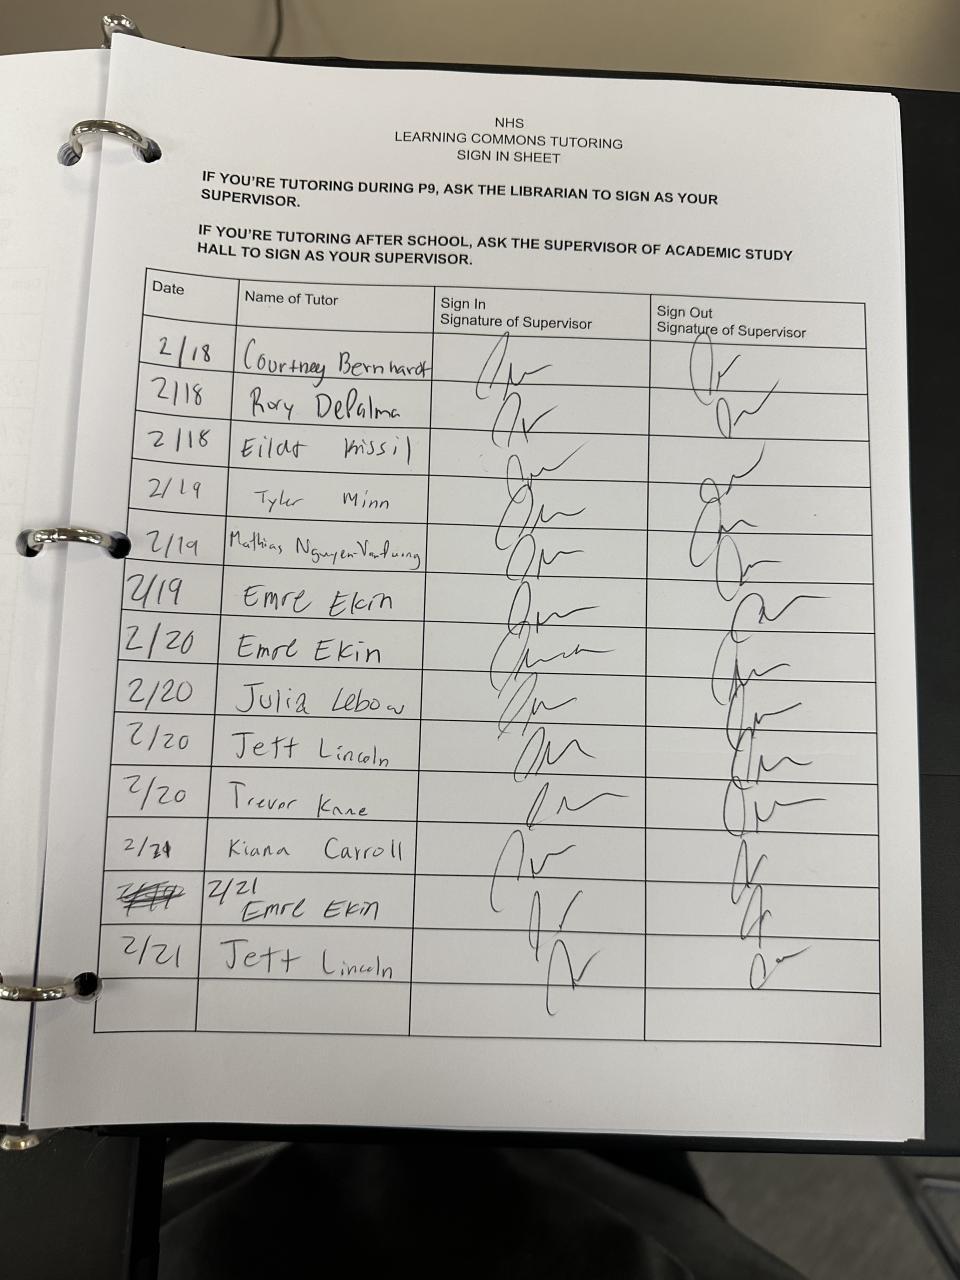 NHS
LEARNING COMMONS TUTORING
SIGN IN SHEET
IF YOU'RE TUTORING DURING P9, ASK THE LIBRARIAN TO SIGN AS YOUR
SUPERVISOR.
IF YOU'RE TUTORING AFTER SCHOOL, ASK THE SUPERVISOR OF ACADEMIC STUDY
HALL TO SIGN AS YOUR SUPERVISOR.
Date Name of Tutor Sign In Sign Out
Signature of Supervisor Signature of Supervisor
2/18 Courtney Bernhardt
2/18 Rory DePalma
2/18 Kissil
2/19 Tyler Minn
2/19 Mathias
2/19 Emre Ekin
2/20 Emre Ekin
2/20 Julia Lebow
2/20 Jett Lincoln
2/20 Trevor Kane
2/21 Kiana Carroll
2/21
Emre Ekin
2/21 Jett Lincoln